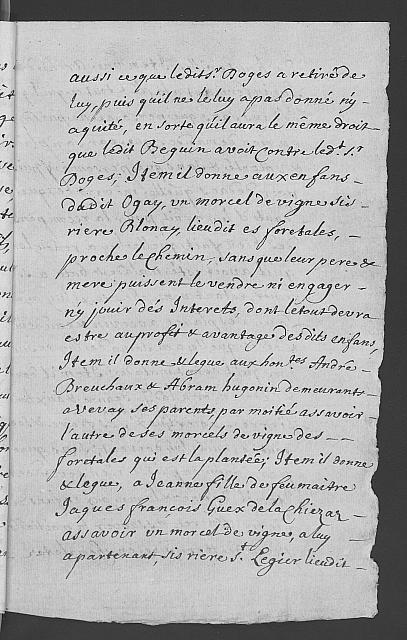 aussi ce que ledit s.r Doges a retiré de
luy, puis qu'il ne le luy a pas donné n'y -
aquité, en sorte qu'il aura le même droit
que ledit Beguin avoit contre led.t s.r
Doges; Item il donne aux enfans -
dudit Ogay, un morcel de vigne sis -
riere Blonay, lieudit es foretales, -
proche le chemin, sans que leur pere &
mere puissent le vendre ni engager -
n'y jouir dés Interets, dont le tous devra
estre au profit & avantage desdits enfans,
Item il donne & legue aux hon.tes André -
Breuchaux & Abram hugonin demeurants -
a Vevay ses parents, par moitié assavoir -
l'autre de ses morcels de vigne des - -
foretales qui est la plantée; Item il donne
& legue, a Jeanne fille de feu maitre
Jaques françois Guex de la Chiezaz -
assavoir un morcel de vigne, a luy -
apartenant, sis riere S.t Legier lieudit -